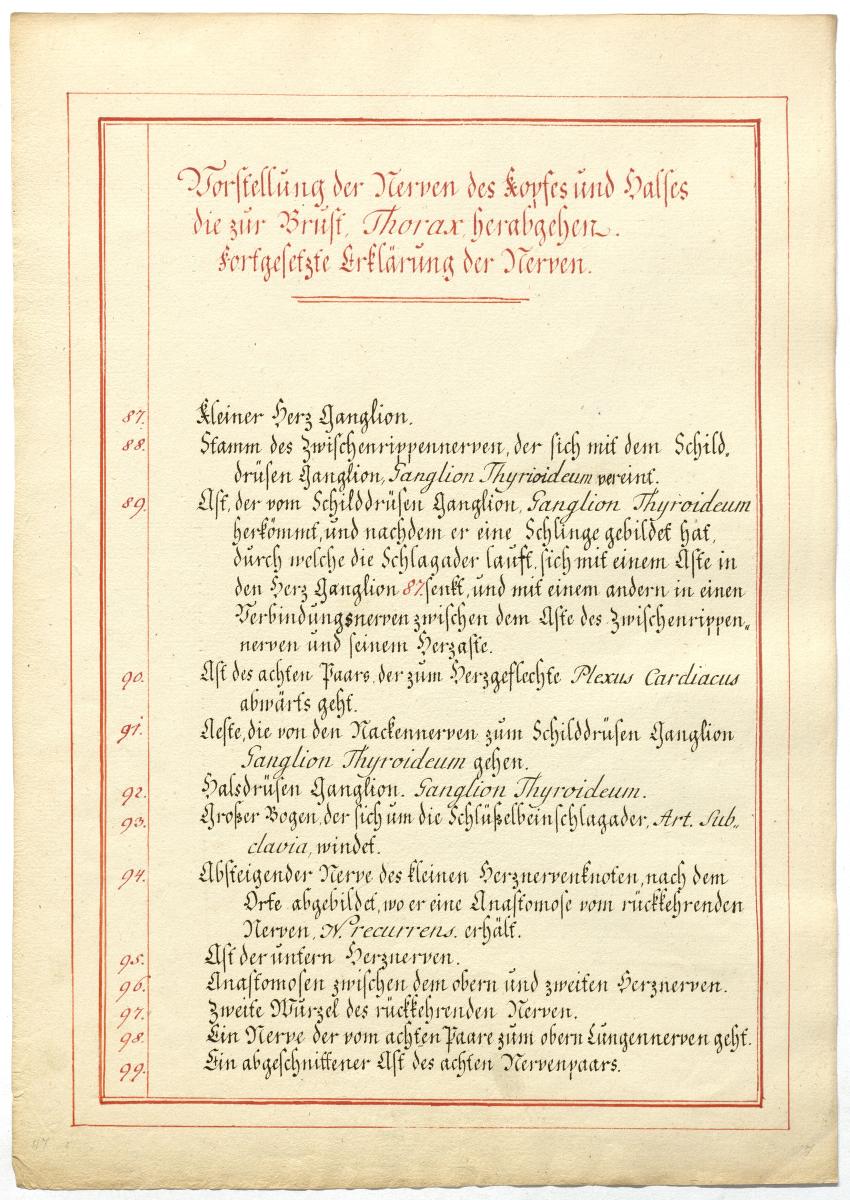 Vorstellung der Nerven des Kopfes und Halses
die zur Brust, Thorax, herabgehen.
Fortgesetzte Erklärung der Nerven.
87. Kleiner Herz Ganglion.
88. Stamm des Zwischenrippennerven, der sich mit dem Schild„
drüsen Ganglion, Ganglion Thyrioideum vereint.
89. Ast, der vom Schilddrüsen Ganglion, Ganglion Thyroideum
herkömmt, und nachdem er eine Schlinge gebildet hat,
durch welche die Schlagader lauft, sich mit einem Aste in
den Herz Ganglion 87. senkt, und mit einem andern in einen
Verbindungsnerven zwischen dem Aste des Zwischenrippen„
nerven und seinem Herzaste.
90. Ast des achten Paars, der zum Herzgeflechte Plexus Cardiacus
abwärts geht.
91. Aeste, die von den Nackennerven zum Schilddrüsen Ganglion
Ganglion Thyroideum gehen.
92. Halsdrüsen Ganglion. Ganglion Thyroideum.
93. Großer Bogen, der sich um die Schlüßelbeinschlagader, Art. Sub„
clavia, windet.
94. Absteigender Nerve des kleinen Herznervenknoten, nach dem
Orte abgebildet, wo er eine Anastomose vom rückkehrenden
Nerven, N. recurrens. erhält.
95. Ast der untern Herznerven.
96. Anastomosen zwischen dem obern und zweiten Herznerven.
97. Zweite Wurzel des rückkehrenden Nerven.
98. Ein Nerve der vom achten Paare zum obern Lungennerven geht.
99. Ein abgeschnittener Ast des achten Nervenpaars.